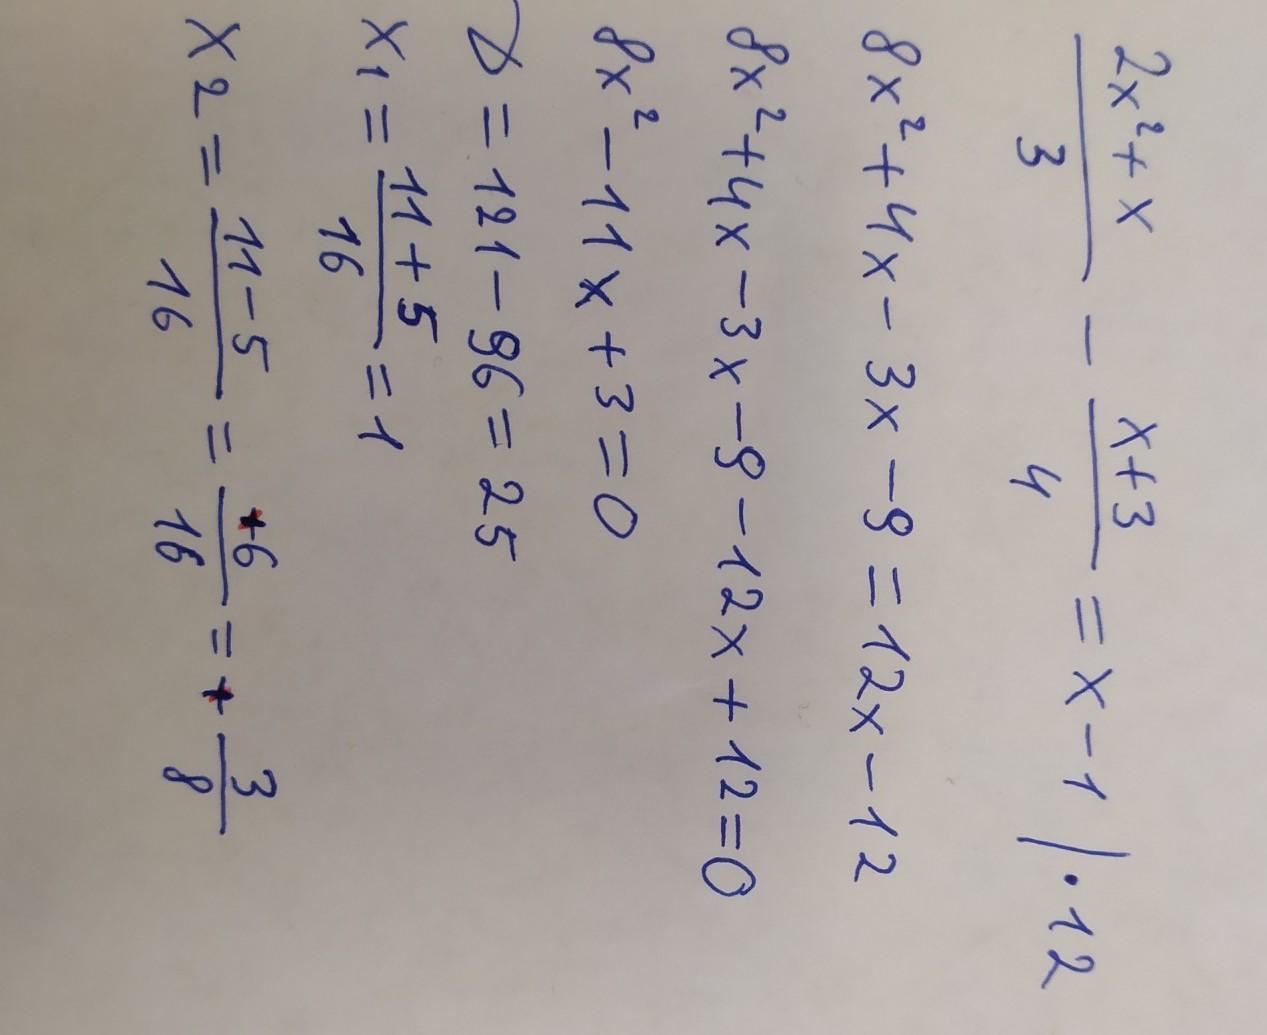 (2x²+x)/3 - (x+3)/4 = x-1 |·12
8x²+4x-3x-9=12x-12
8x²+4x-3x-9-12x+12=0
8x²-11x+3=0
D=121-96=25
x1=(11+5)/16=1
x2=(11-5)/16=+6/16=+3/8